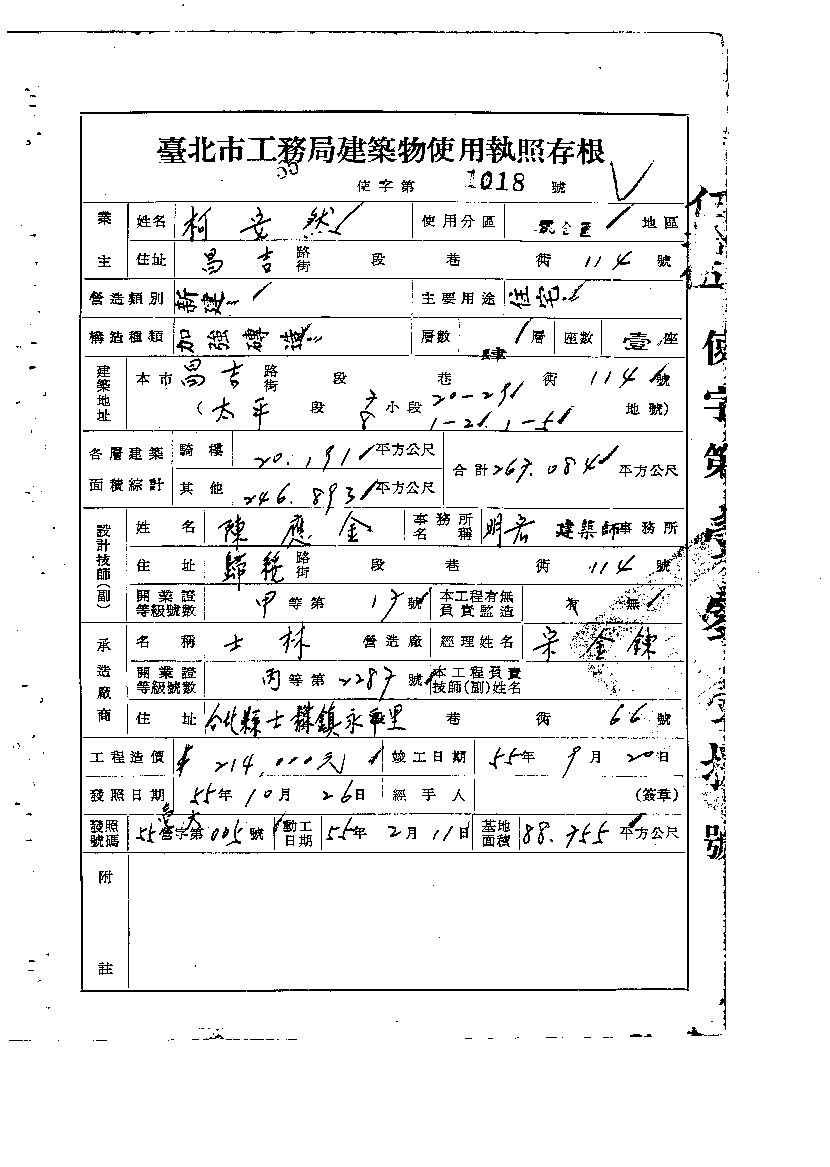 臺北市工務局建築物使用執照存根
55
使字第 1018 號
業主 姓名 柯安然 使用分區 地區
住址 昌吉 路街 段 巷 衖 114 號
營造類別 新建 主要用途 住宅
構造種類 加強磚造 層數 肆層 座數 壹座
建築地址 本市 昌吉 路街 段 巷 衖 114 號
(太平 段 小段 20-29 1-21. 1-5 地號)
各層建築面積綜計 騎樓 20.191 平方公尺 合計 267.084 平方公尺
其他 246.893 平方公尺
設計技師(副) 姓名 陳應金 事務所名稱 明宏 建築師事務所
住址 歸綏 路街 段 巷 衖 114 號
開業證等級號數 甲等第 17 號 本工程有無負責監造 有 無
承造廠商 名稱 士林 營造廠 經理姓名 宋金鍊
開業證等級號數 丙等第 2287 號 本工程負責技師(副)姓名
住址 台北縣士林鎮永平里 巷 衖 66 號
工程造價 $214,000元 竣工日期 55年9月20日
發照日期 55年10月26日 經手人 (簽章)
發照號碼 55營字第005號 動工日期 55年2月11日 基地面積 88.755 平方公尺
附註
使字第
號